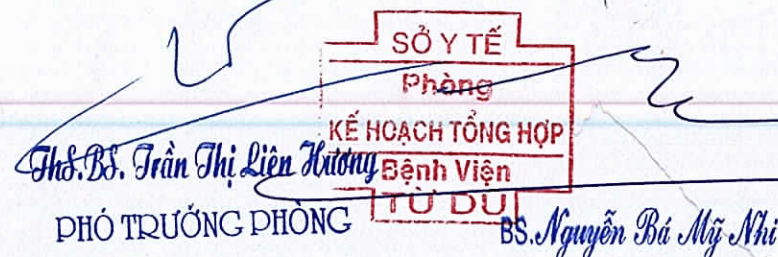 SỞ Y TẾ
Phòng
KẾ HOẠCH TỔNG HỢP
Bệnh Viện
TỪ DU
ThS.BS. Trần Thị Liên Hương
PHÓ TRƯỞNG PHÒNG
BS. Nguyễn Bá Mỹ Nhi